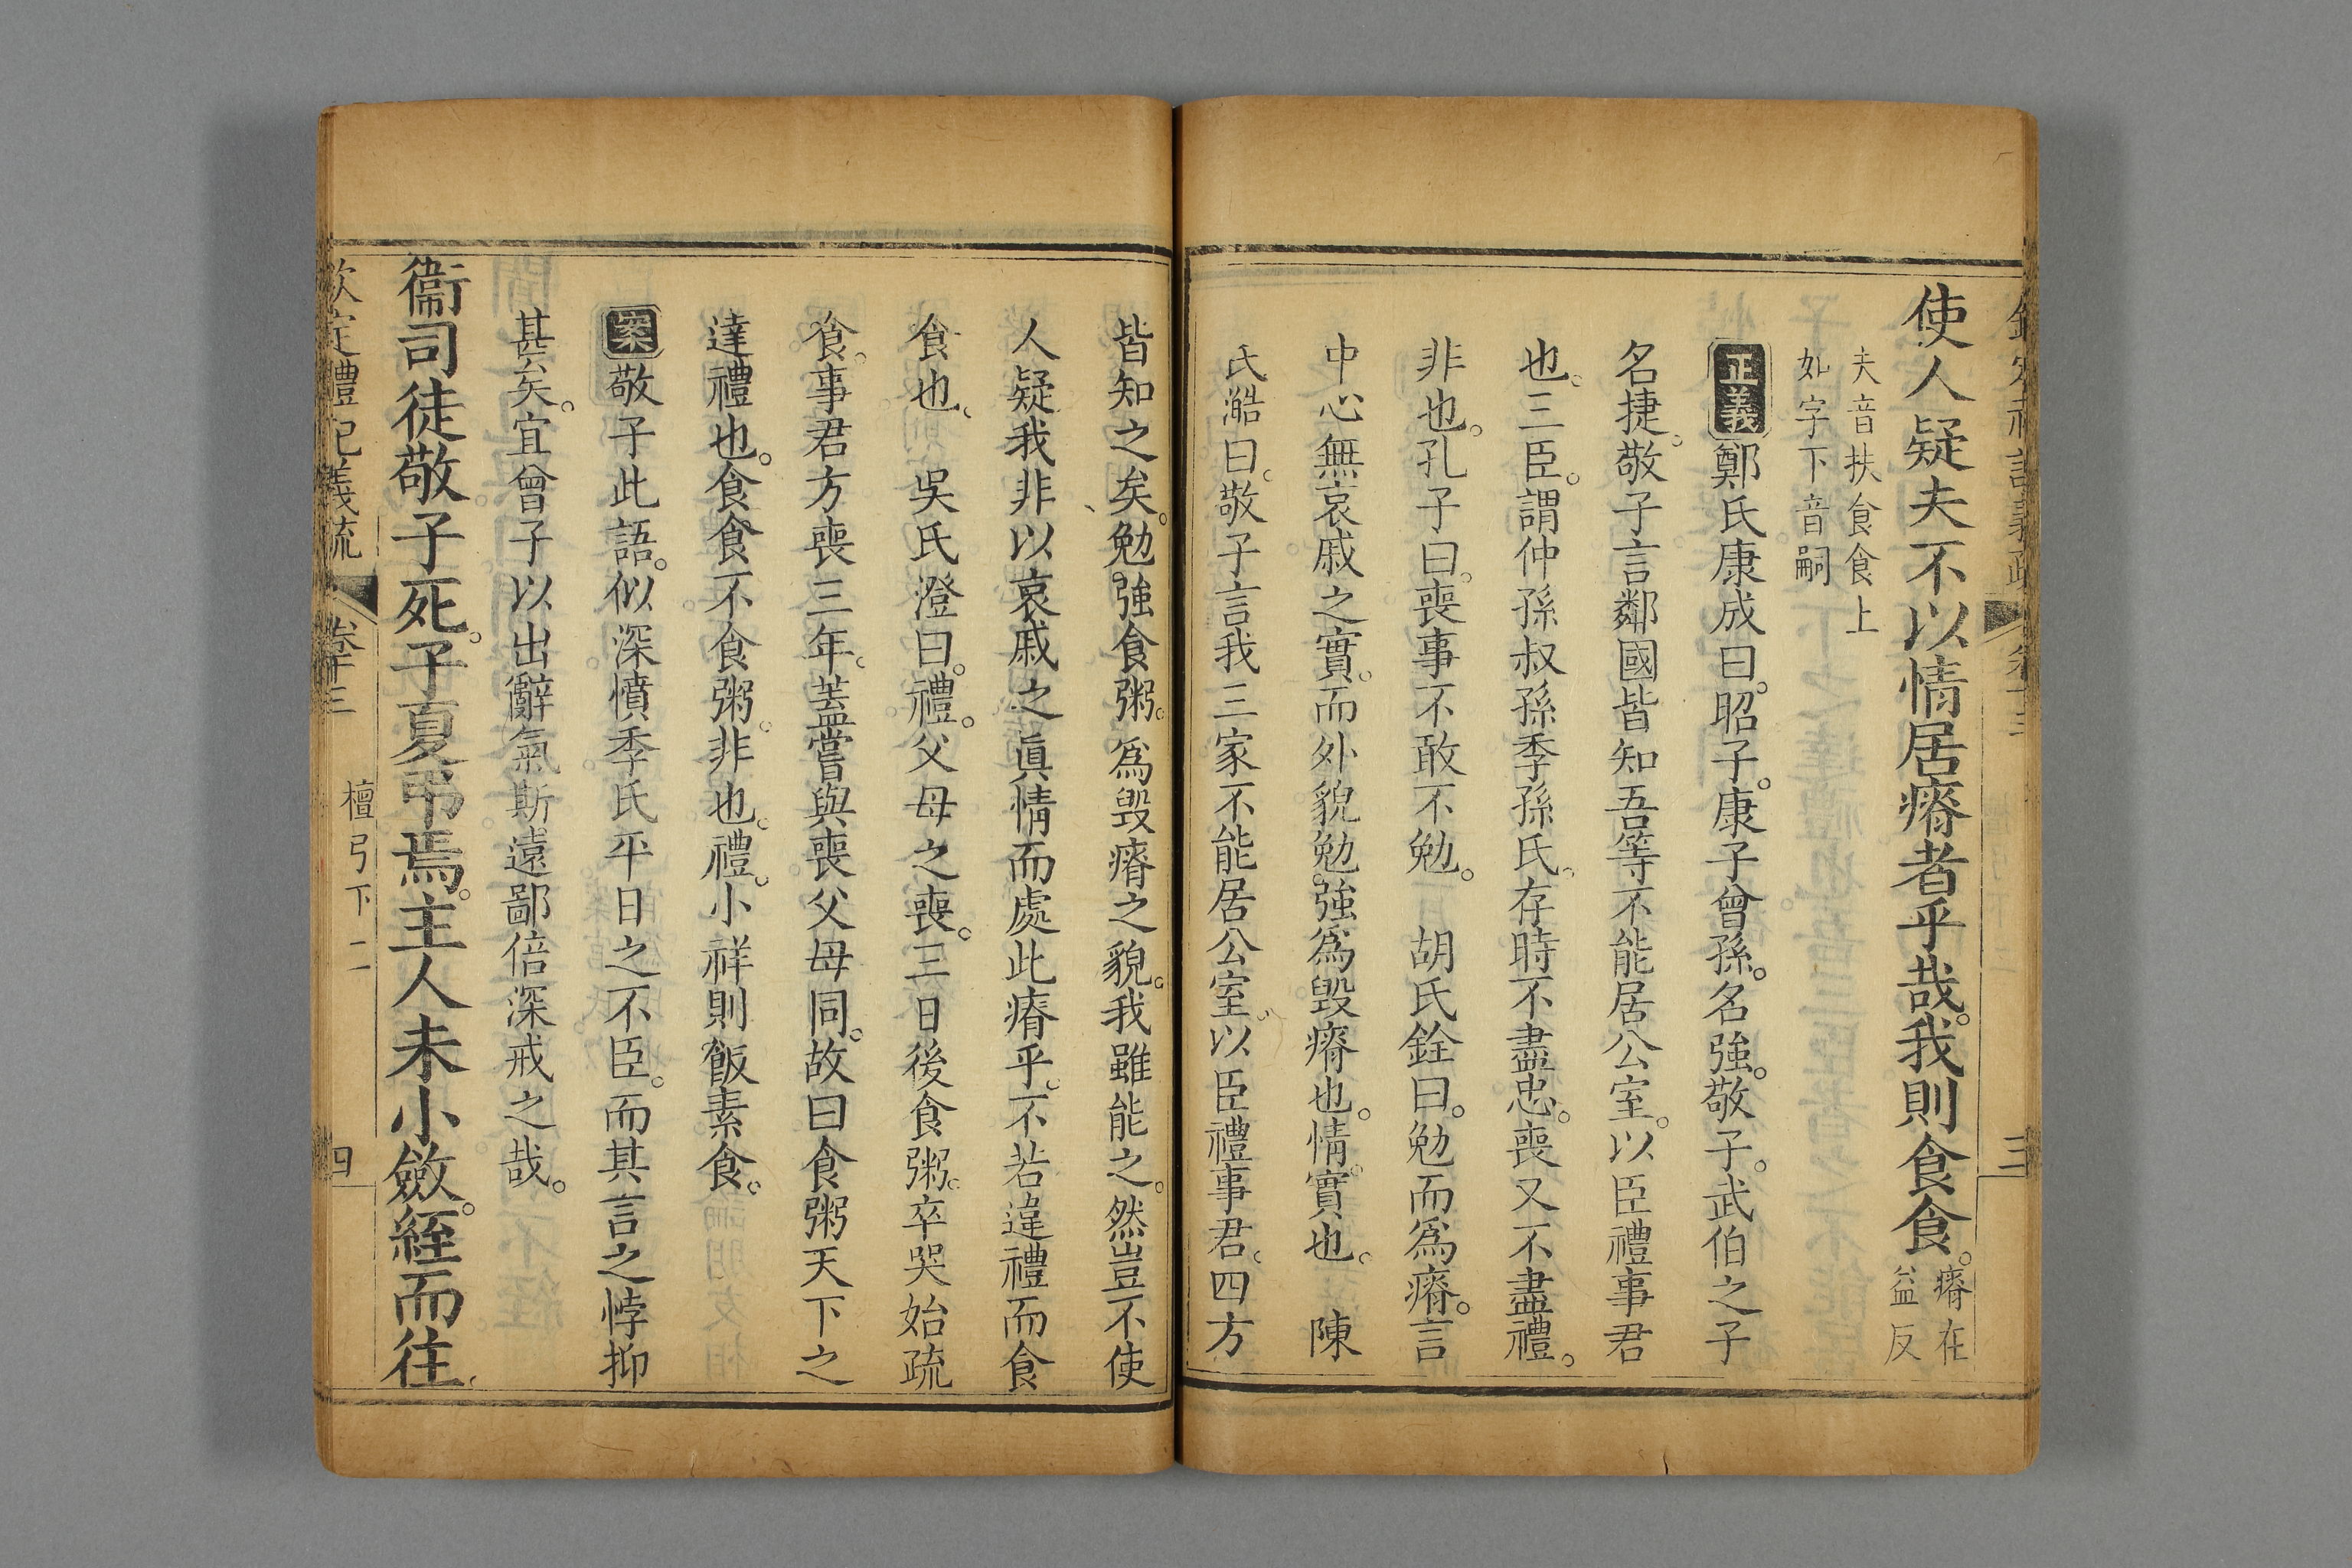 使人疑夫不以情居瘠者乎哉。我則食食。瘠在益反
夫音扶食食上
如字下音嗣
正義鄭氏康成曰。昭子。康子曾孫。名強。敬子。武伯之子
名捷。敬子言鄰國皆知吾等不能居公室。以臣禮事君
也。三臣。謂仲孫叔孫季孫氏。存時不盡忠。喪又不盡禮。
非也。孔子曰。喪事不敢不勉。 胡氏銓曰。勉而爲瘠。言
中心無哀戚之實。而外貌勉強爲毀瘠也。情。實也。 陳
氏澔曰。敬子言我三家不能居公室。以臣禮事君。四方
皆知之矣。勉強食粥。爲毀瘠之貌。我雖能之。然豈不使
人疑我非以哀戚之眞情而處此瘠乎。不若違禮而食
食也。 吳氏澄曰。禮。父母之喪。三日後食粥。卒哭始疏
食。事君方喪三年。蓋嘗與喪父母同。故曰食粥天下之
達禮也。食食不食粥。非也。禮。小祥則飯素食。
案敬子此語。似深憤季氏平日之不臣。而其言之悖抑
甚矣。宜曾子以出辭氣斯遠鄙倍深戒之哉。
衞司徒敬子死。子夏弔焉。主人未小斂。絰而往。
欽定禮記義疏 卷十三 檀弓下二 四